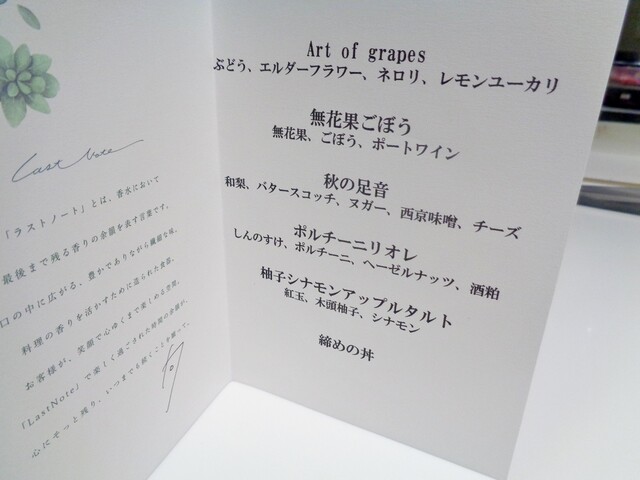 Last Note
「ラストノート」とは、香水において
最後まで残る香りの余韻を表す言葉です。
口の中に広がる、豊かでありながら繊細な味。
料理の香りを活かすために造られた食器。
お客様が、笑顔で心ゆくまで楽しめる空間。
「LastNote」で楽しく過ごされた時間の余韻が、
心にそっと残り、いつまでも続くことを願って。
Art of grapes
ぶどう、エルダーフラワー、ネロリ、レモンユーカリ
無花果ごぼう
無花果、ごぼう、ポートワイン
秋の足音
和梨、バタースコッチ、ヌガー、西京味噌、チーズ
ポルチーニリオレ
しんのすけ、ポルチーニ、ヘーゼルナッツ、酒粕
柚子シナモンアップルタルト
紅玉、木頭柚子、シナモン
締めの丼